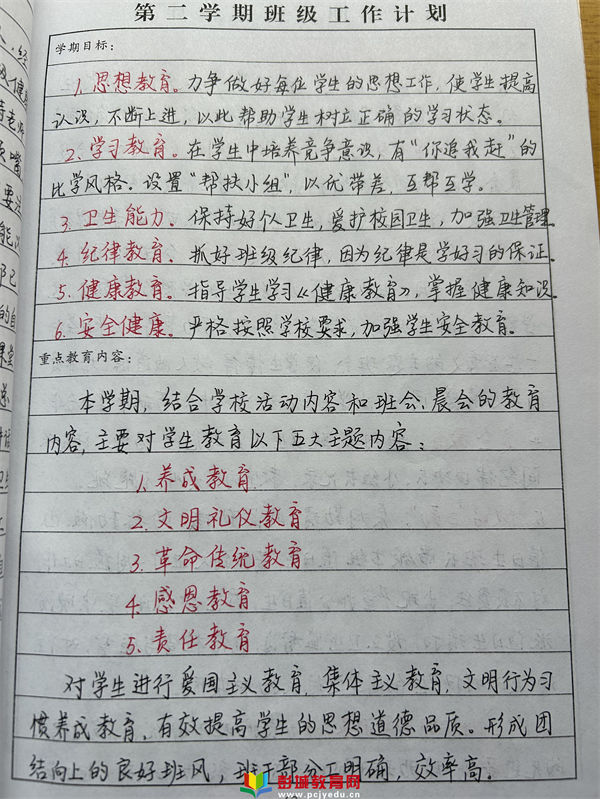 第二学期班级工作计划
学期目标:
1. 思想教育。力争做好每位学生的思想工作，使学生提高
认识，不断上进，以此帮助学生树立正确的学习状态。
2. 学习教育。在学生中培养竞争意识，有“你追我赶”的
比学风格。设置“帮扶小组”，以优带差，互帮互学。
3. 卫生能力。保持好个人卫生，爱护校园卫生，加强卫生管理
4. 纪律教育。抓好班级纪律，因为纪律是学好习的保证。
5. 健康教育。指导学生学习《健康教育》，掌握健康知识
6. 安全健康。严格按照学校要求，加强学生安全教育。
重点教育内容:
本学期，结合学校活动内容和班会、晨会的教育
内容，主要对学生教育以下五大主题内容：
1. 养成教育
2. 文明礼仪教育
3. 革命传统教育
4. 感恩教育
5. 责任教育
对学生进行爱国主义教育，集体主义教育，文明行为习
惯养成教育，有效提高学生的思想道德品质。形成团
结向上的良好班风，班干部分工明确，效率高。
彭城教育网
www.pcjyedu.cn